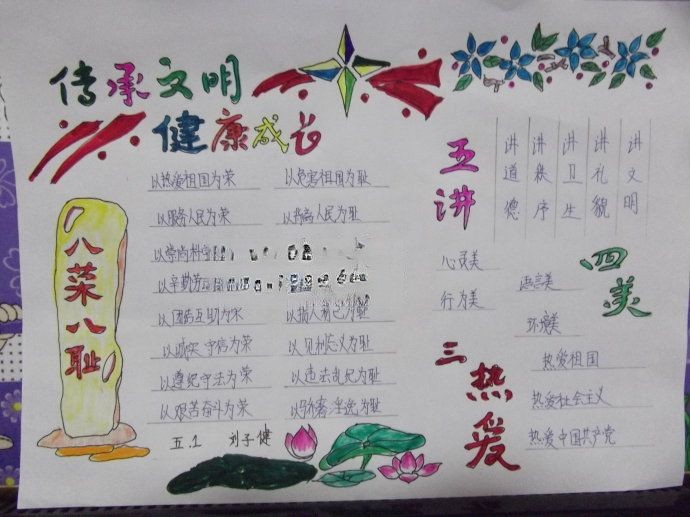 传承文明
健康成长
八荣八耻
以热爱祖国为荣 以危害祖国为耻
以服务人民为荣 以背离人民为耻
以崇尚科学
以辛勤劳
以团结互助为荣 以损人利己为耻
以诚实守信为荣 以见利忘义为耻
以遵纪守法为荣 以违法乱纪为耻
以艰苦奋斗为荣 以骄奢淫逸为耻
五.1 刘子健
五讲
讲文明
讲礼貌
讲卫生
讲秩序
讲道德
四美
心灵美 语言美
行为美 环境美
三热爱
热爱祖国
热爱社会主义
热爱中国共产党